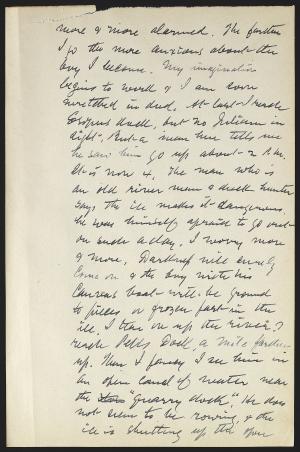 more & more alarmed. The farther
I go the more anxious about the
boy I become. My imagination
begins to work & I am soon
wretched in deed. At last I reach
Esopus dock, but no Julian in
sight. But a man here tells me
he saw him go up about 2 P.M.
It is now 4. The man who is
an old river man & duck hunter
says the ice makes it dangerous.
he was himself afraid to go out
on such a day. I worry more
& more, Darkness will surely
come on & the boy with his
canvas boat will be ground
to pieces or frozen fast in the
ice. I start on up the river &
reach Pells Dock, a mile farther
up. Then I fancy I see him in
an open canal of water near
the "quarry dock". He does
not seem to be rowing, & the
ice is shutting up the open